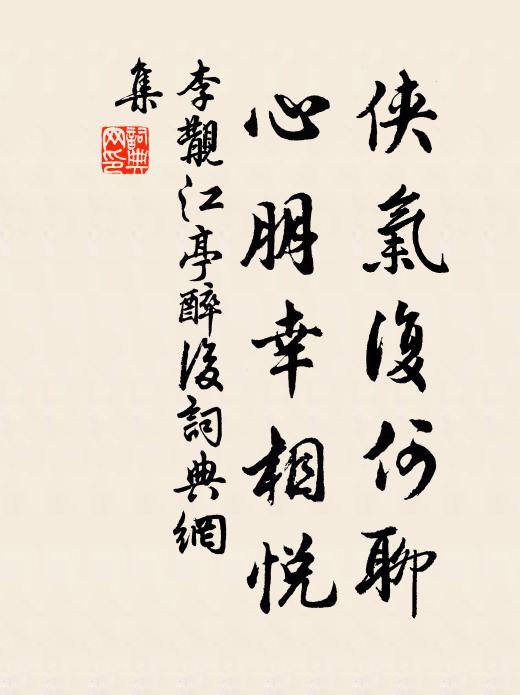 俠氣復何聊
心朋幸相悅
李觀江亭醉後詞典網
集
詞典
网印